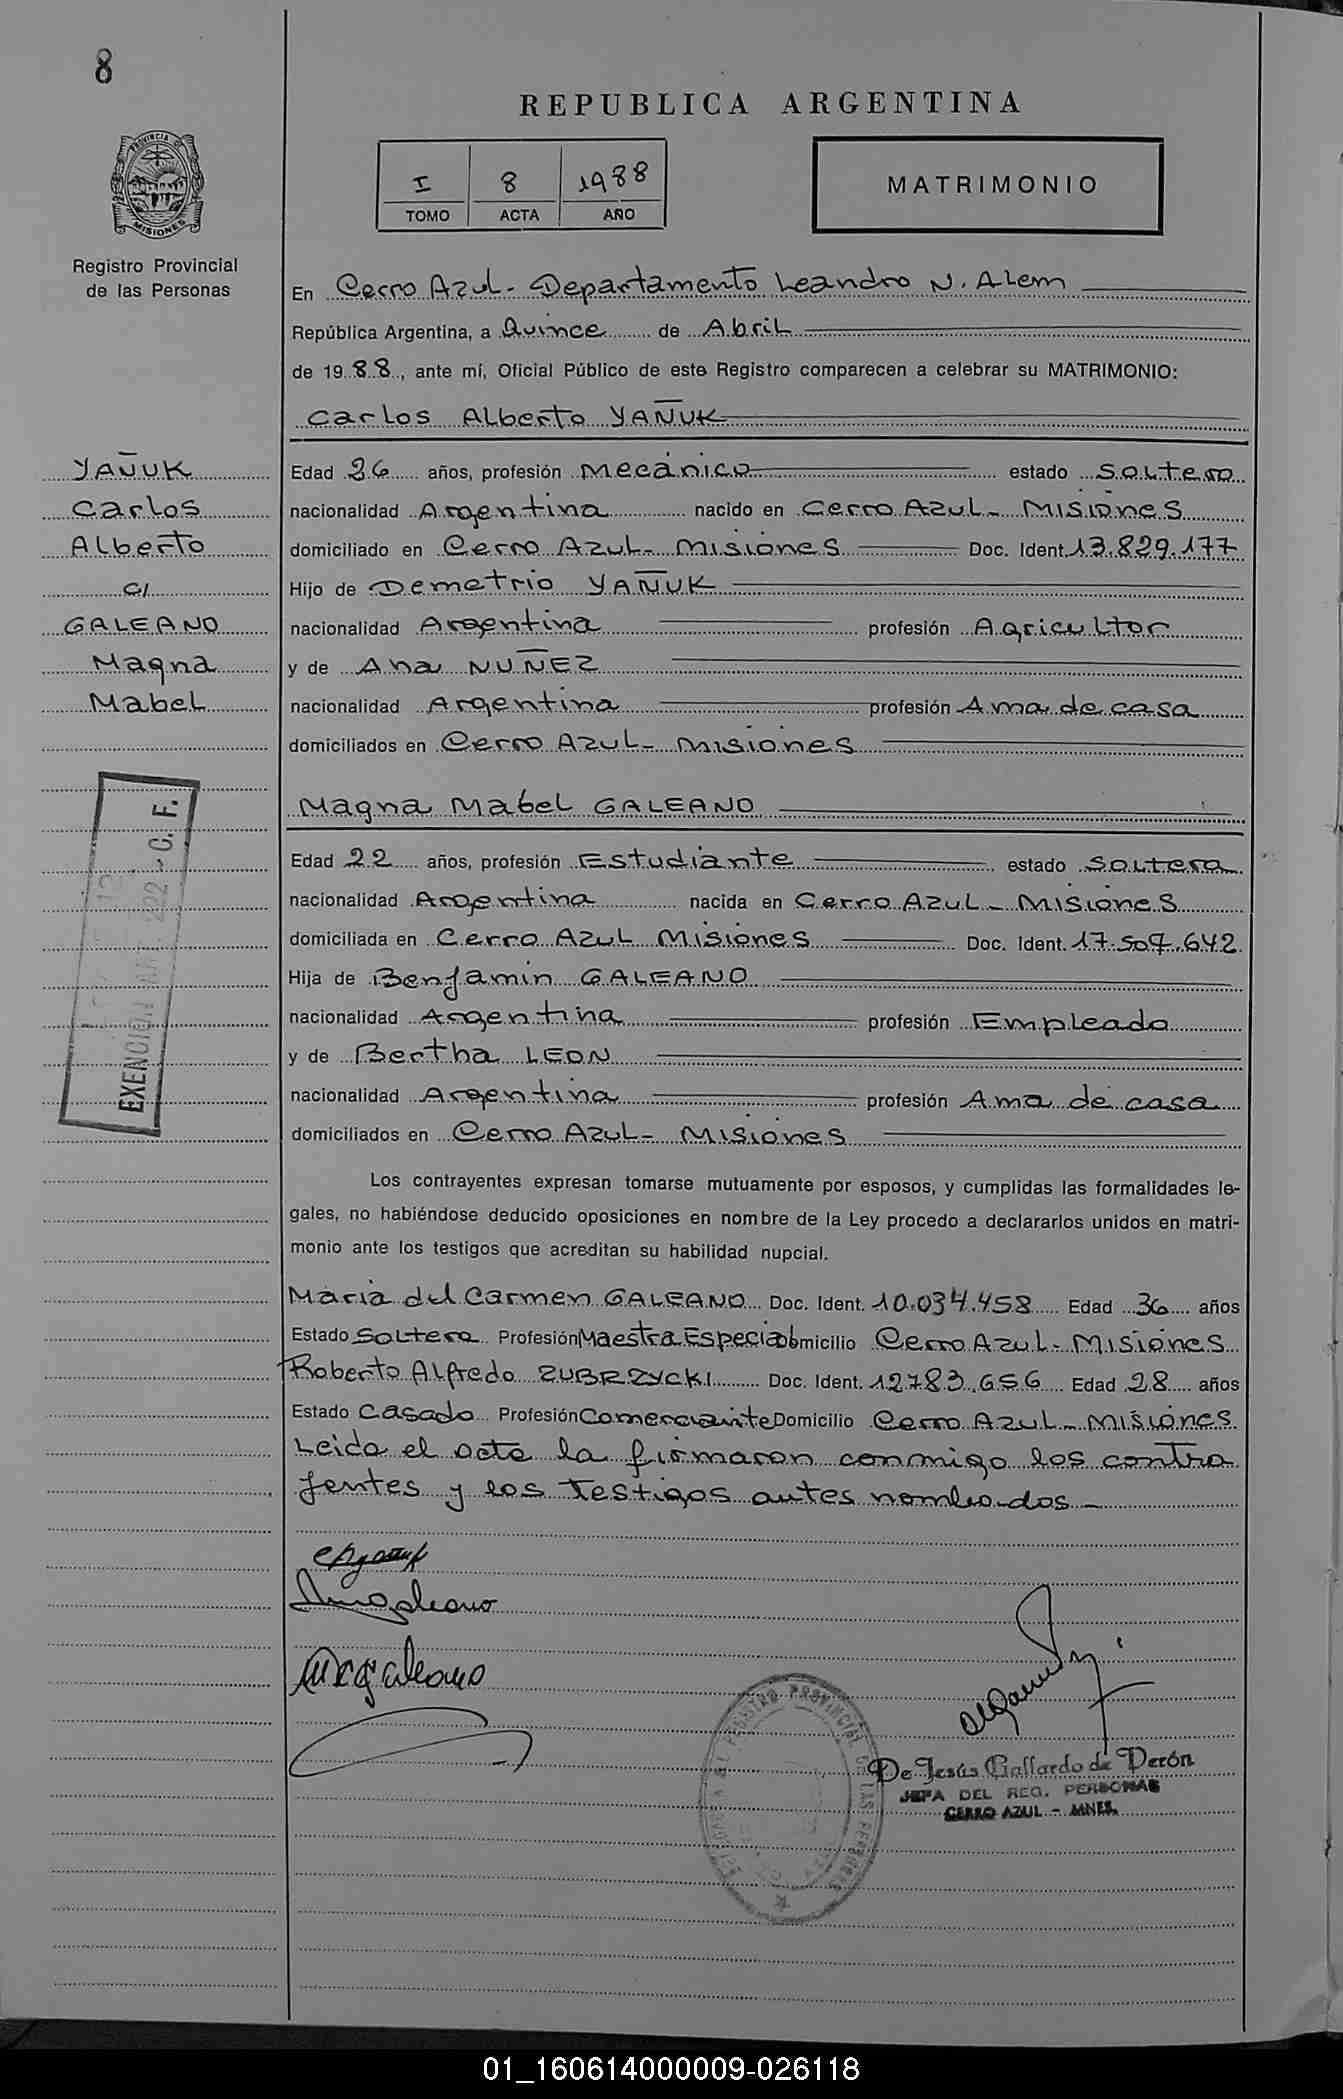 8
REPUBLICA ARGENTINA
I 8 1988
TOMO ACTA AÑO
MATRIMONIO
PROVINCIA DE
MISIONES
Registro Provincial
de las Personas
En Cerro Azul - Departamento Leandro N. Alem
República Argentina, a Quince de Abril
de 1988, ante mí, Oficial Público de este Registro comparecen a celebrar su MATRIMONIO:
Carlos Alberto YAÑUK
YAÑUK
Carlos
Alberto
c/
GALEANO
Magna
Mabel
Edad 26 años, profesión Mecánico estado Soltero
nacionalidad Argentina nacido en Cerro Azul - Misiones
domiciliado en Cerro Azul - Misiones Doc. Ident. 13.829.177
Hijo de Demetrio YAÑUK
nacionalidad Argentina profesión Agricultor
y de Ana NUÑEZ
nacionalidad Argentina profesión Ama de casa
domiciliados en Cerro Azul - Misiones
Magna Mabel GALEANO
Edad 22 años, profesión Estudiante estado Soltera
nacionalidad Argentina nacida en Cerro Azul - Misiones
domiciliada en Cerro Azul Misiones Doc. Ident. 17.507.642
Hija de Benjamin GALEANO
nacionalidad Argentina profesión Empleado
y de Bertha LEON
nacionalidad Argentina profesión Ama de casa
domiciliados en Cerro Azul - Misiones
EXENCION ART. 292 C. F.
Los contrayentes expresan tomarse mutuamente por esposos, y cumplidas las formalidades le-
gales, no habiéndose deducido oposiciones en nombre de la Ley procedo a declararlos unidos en matri-
monio ante los testigos que acreditan su habilidad nupcial.
Maria del Carmen GALEANO Doc. Ident. 10.034.458 Edad 36 años
Estado Soltera Profesión Maestra Especial Domicilio Cerro Azul - Misiones
Roberto Alfredo ZUBRZYCKI Doc. Ident. 12783.656 Edad 28 años
Estado Casado Profesión Comerciante Domicilio Cerro Azul - Misiones
Leida el acta la firmaron conmigo los contra
yentes y los testigos antes nombrados -
REGISTRO PROVINCIAL DE LAS PERSONAS
De Jesús Gallardo de Perón
JEFA DEL REG. PERSONAS
CERRO AZUL - MNES.
01_160614000009-026118